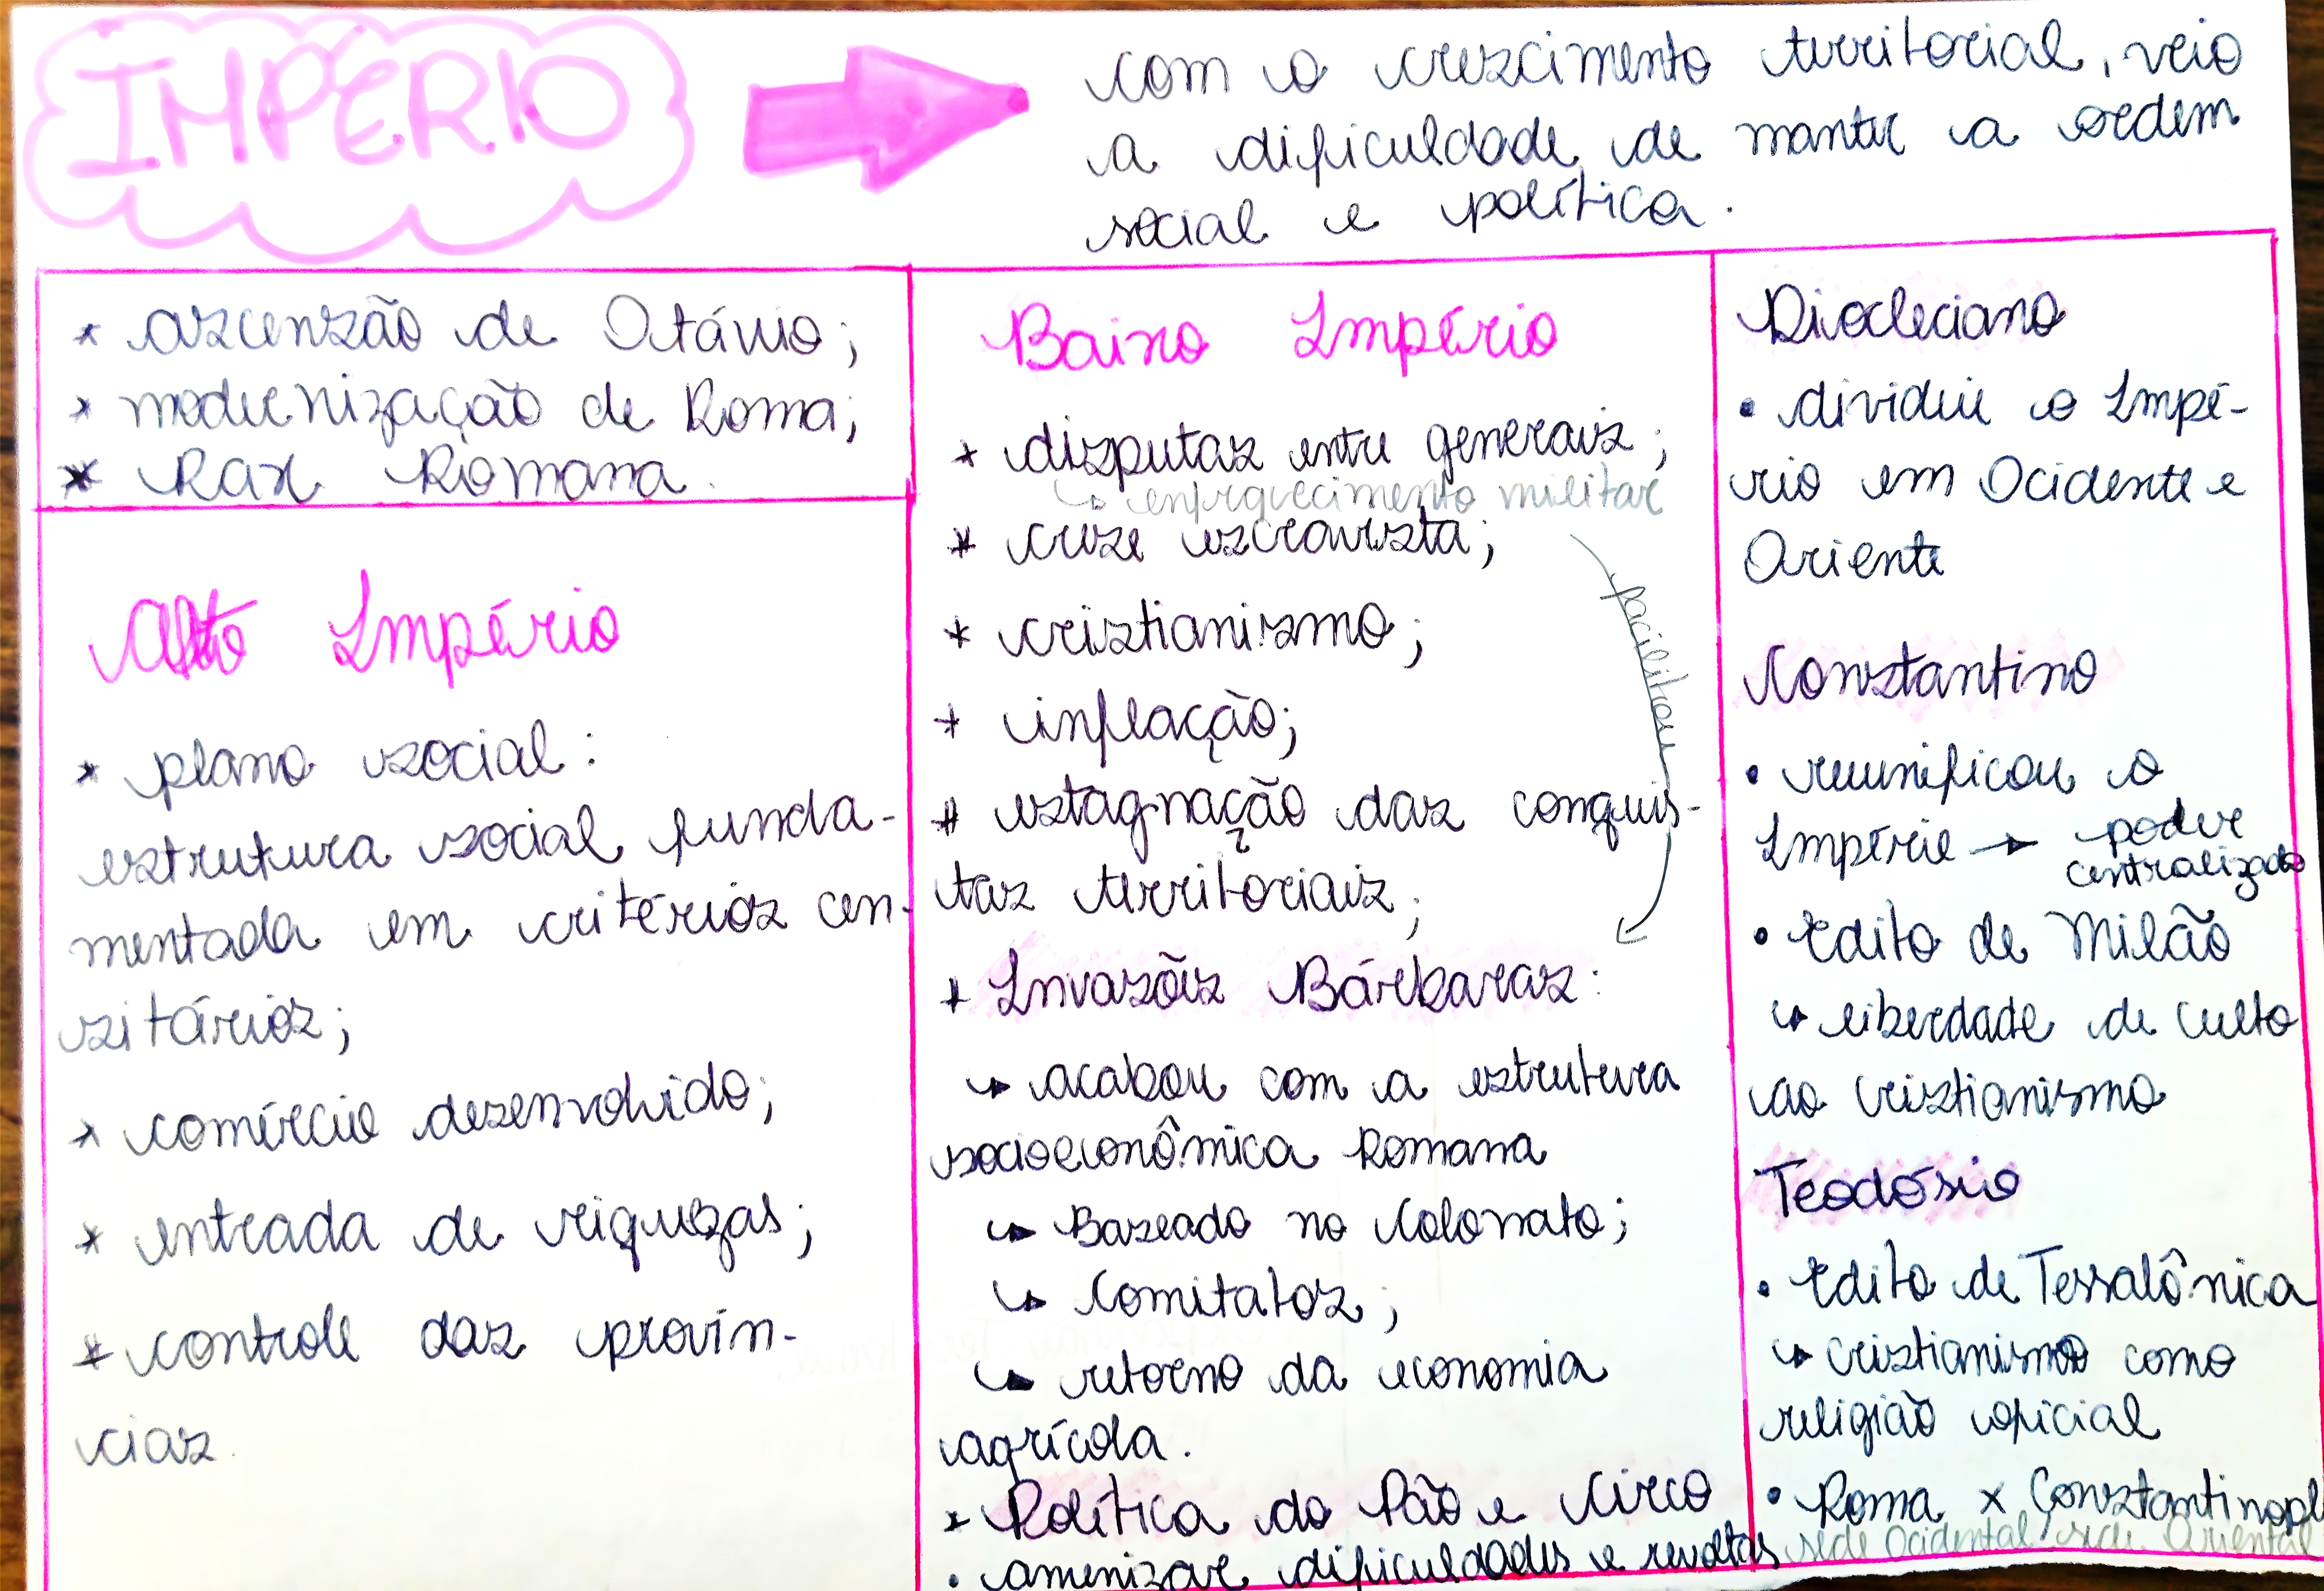 IMPÉRIO
com o crescimento territorial, veio
a dificuldade de manter a ordem
social e política.
* ascensão de Otávio;
* modernização de Roma;
* Pax Romana.
Alto Império
* plano social:
estrutura social funda-
mentada em critérios cen-
sitários;
* comércio desenvolvido;
* entrada de riquezas;
* controle das provín-
cias.
Baixo Império
* disputas entre generais;
↳ enfraquecimento militar
* crise escravista;
* cristianismo;
* inflação;
* estagnação das conquis-
tas territoriais;
facilitou
* Invasões Bárbaras:
↳ acabou com a estrutura
socioeconômica Romana
↳ Baseado no Colonato;
↳ Comitatos;
↳ retorno da economia
agrícola.
* Política do Pão e Circo
• amenizar dificuldades e revoltas
Diocleciano
• dividiu o Impé-
rio em Ocidente e
Oriente
Constantino
• reunificou o
Império → poder
centralizado
• Edito de Milão
↳ liberdade de culto
ao cristianismo
Teodósio
• Edito de Tessalônica
↳ cristianismo como
religião oficial
• Roma x Constantinopl
sede Ocidental sede Oriental